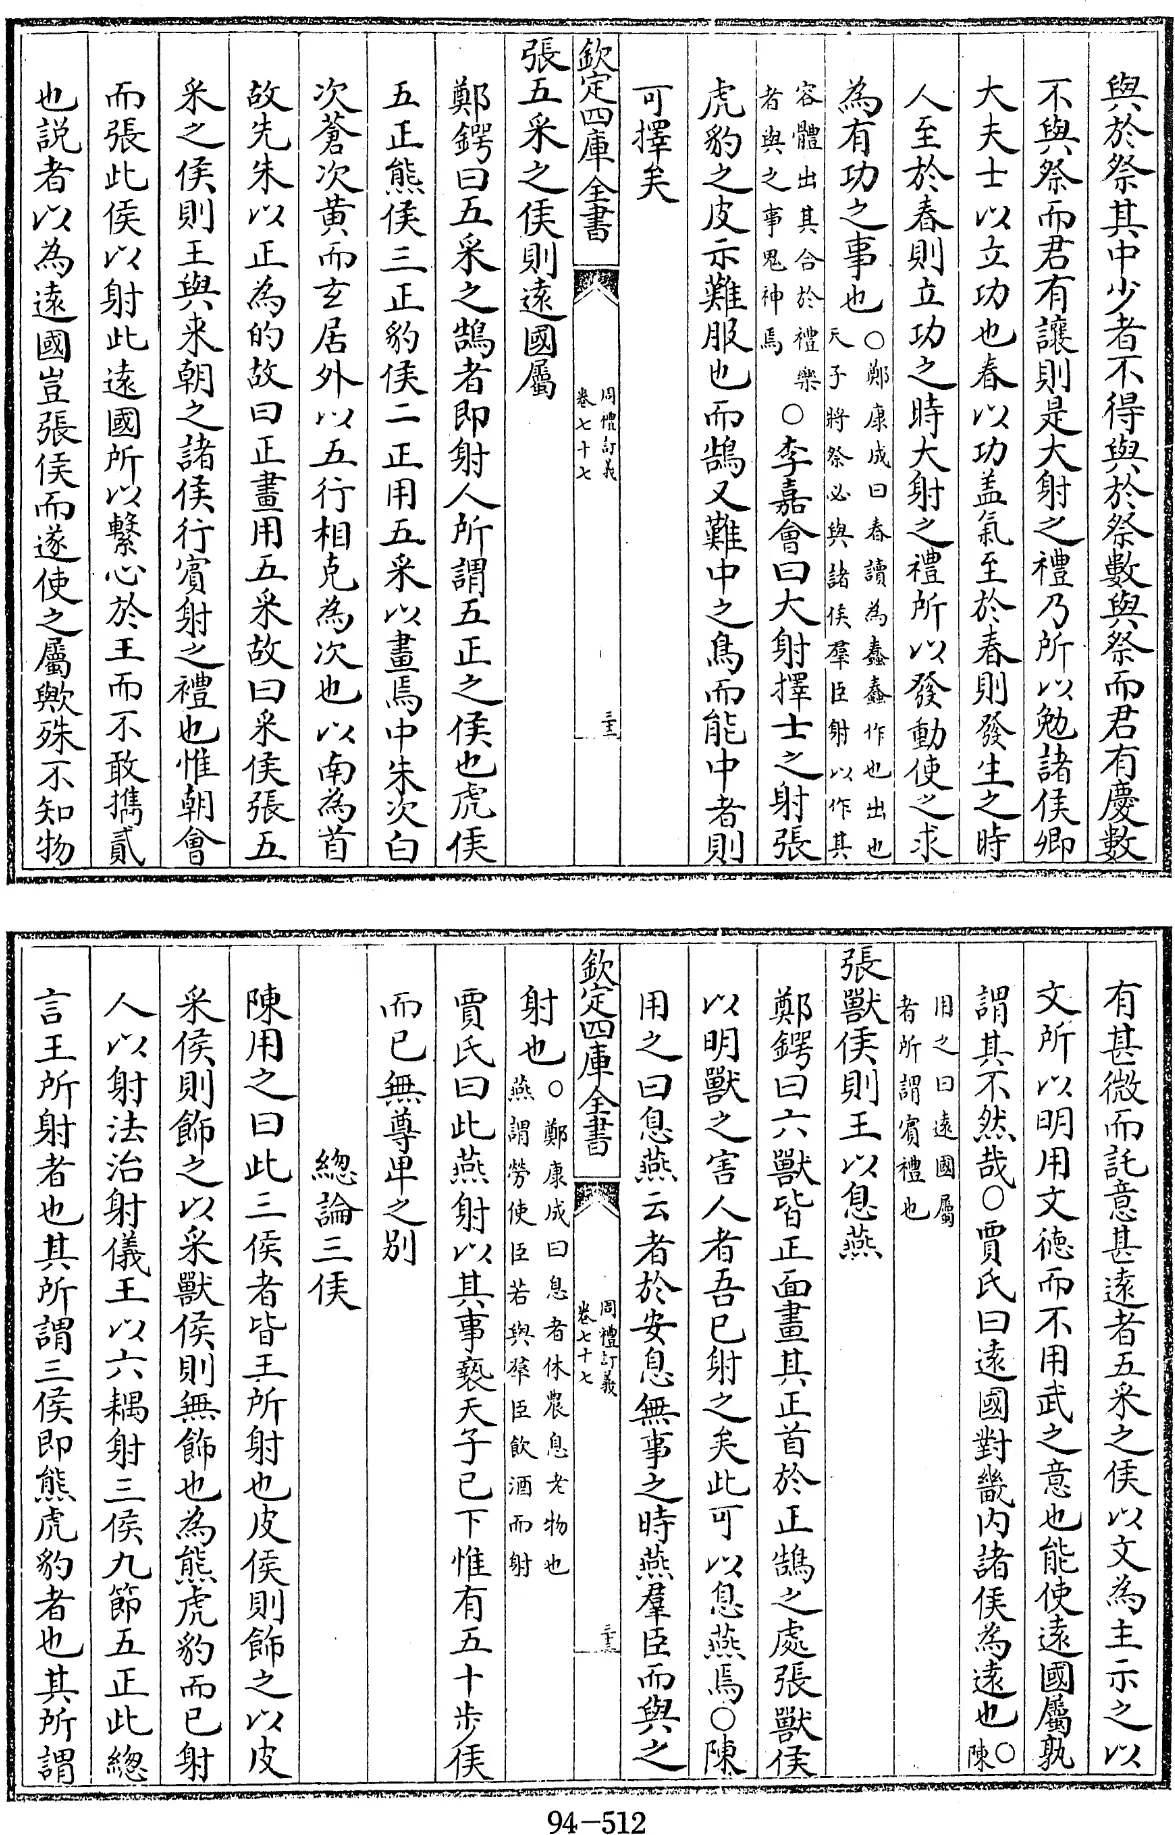 與於祭其中少者不得與於祭數與祭而君有慶數
不與祭而君有讓則是大射之禮乃所以勉諸侯卿
大夫士以立功也春以功盖氣至於春則發生之時
人至於春則立功之時大射之禮所以發動使之求
為有功之事也○鄭康成曰春讀為蠢蠢作也出也
天子將祭必與諸侯羣臣射以作其
容體出其合於禮樂
者與之事鬼神焉
○李嘉會曰大射擇士之射張
虎豹之皮示難服也而鵠又難中之鳥而能中者則
可擇矣
欽定四庫全書
周禮訂義
卷七十七
三十二
張五采之侯則遠國屬
鄭鍔曰五采之鵠者即射人所謂五正之侯也虎侯
五正熊侯三正豹侯二正用五采以畫焉中朱次白
次蒼次黄而玄居外以五行相克為次也以南為首
故先朱以正為的故曰正畫用五采故曰采侯張五
采之侯則王與来朝之諸侯行賓射之禮也惟朝會
而張此侯以射此遠國所以繫心於王而不敢攜貳
也説者以為遠國豈張侯而遂使之屬歟殊不知物
有甚微而託意甚遠者五采之侯以文為主示之以
文所以明用文德而不用武之意也能使遠國屬孰
謂其不然哉○賈氏曰遠國對畿内諸侯為遠也○陳
用之曰遠國屬
者所謂賓禮也
張獸侯則王以息燕
鄭鍔曰六獸皆正面畫其正首於正鵠之處張獸侯
以明獸之害人者吾已射之矣此可以息燕焉○陳
用之曰息燕云者於安息無事之時燕羣臣而與之
欽定四庫全書
周禮訂義
卷七十七
三十三
射也○鄭康成曰息者休農息老物也
燕謂勞使臣若與羣臣飲酒而射
賈氏曰此燕射以其事褻天子已下惟有五十歩侯
而已無尊卑之别
總論三侯
陳用之曰此三侯者皆王所射也皮侯則飾之以皮
采侯則飾之以采獸侯則無飾也為熊虎豹而已射
人以射法治射儀王以六耦射三侯九節五正此緫
言王所射者也其所謂三侯即熊虎豹者也其所謂
94-512